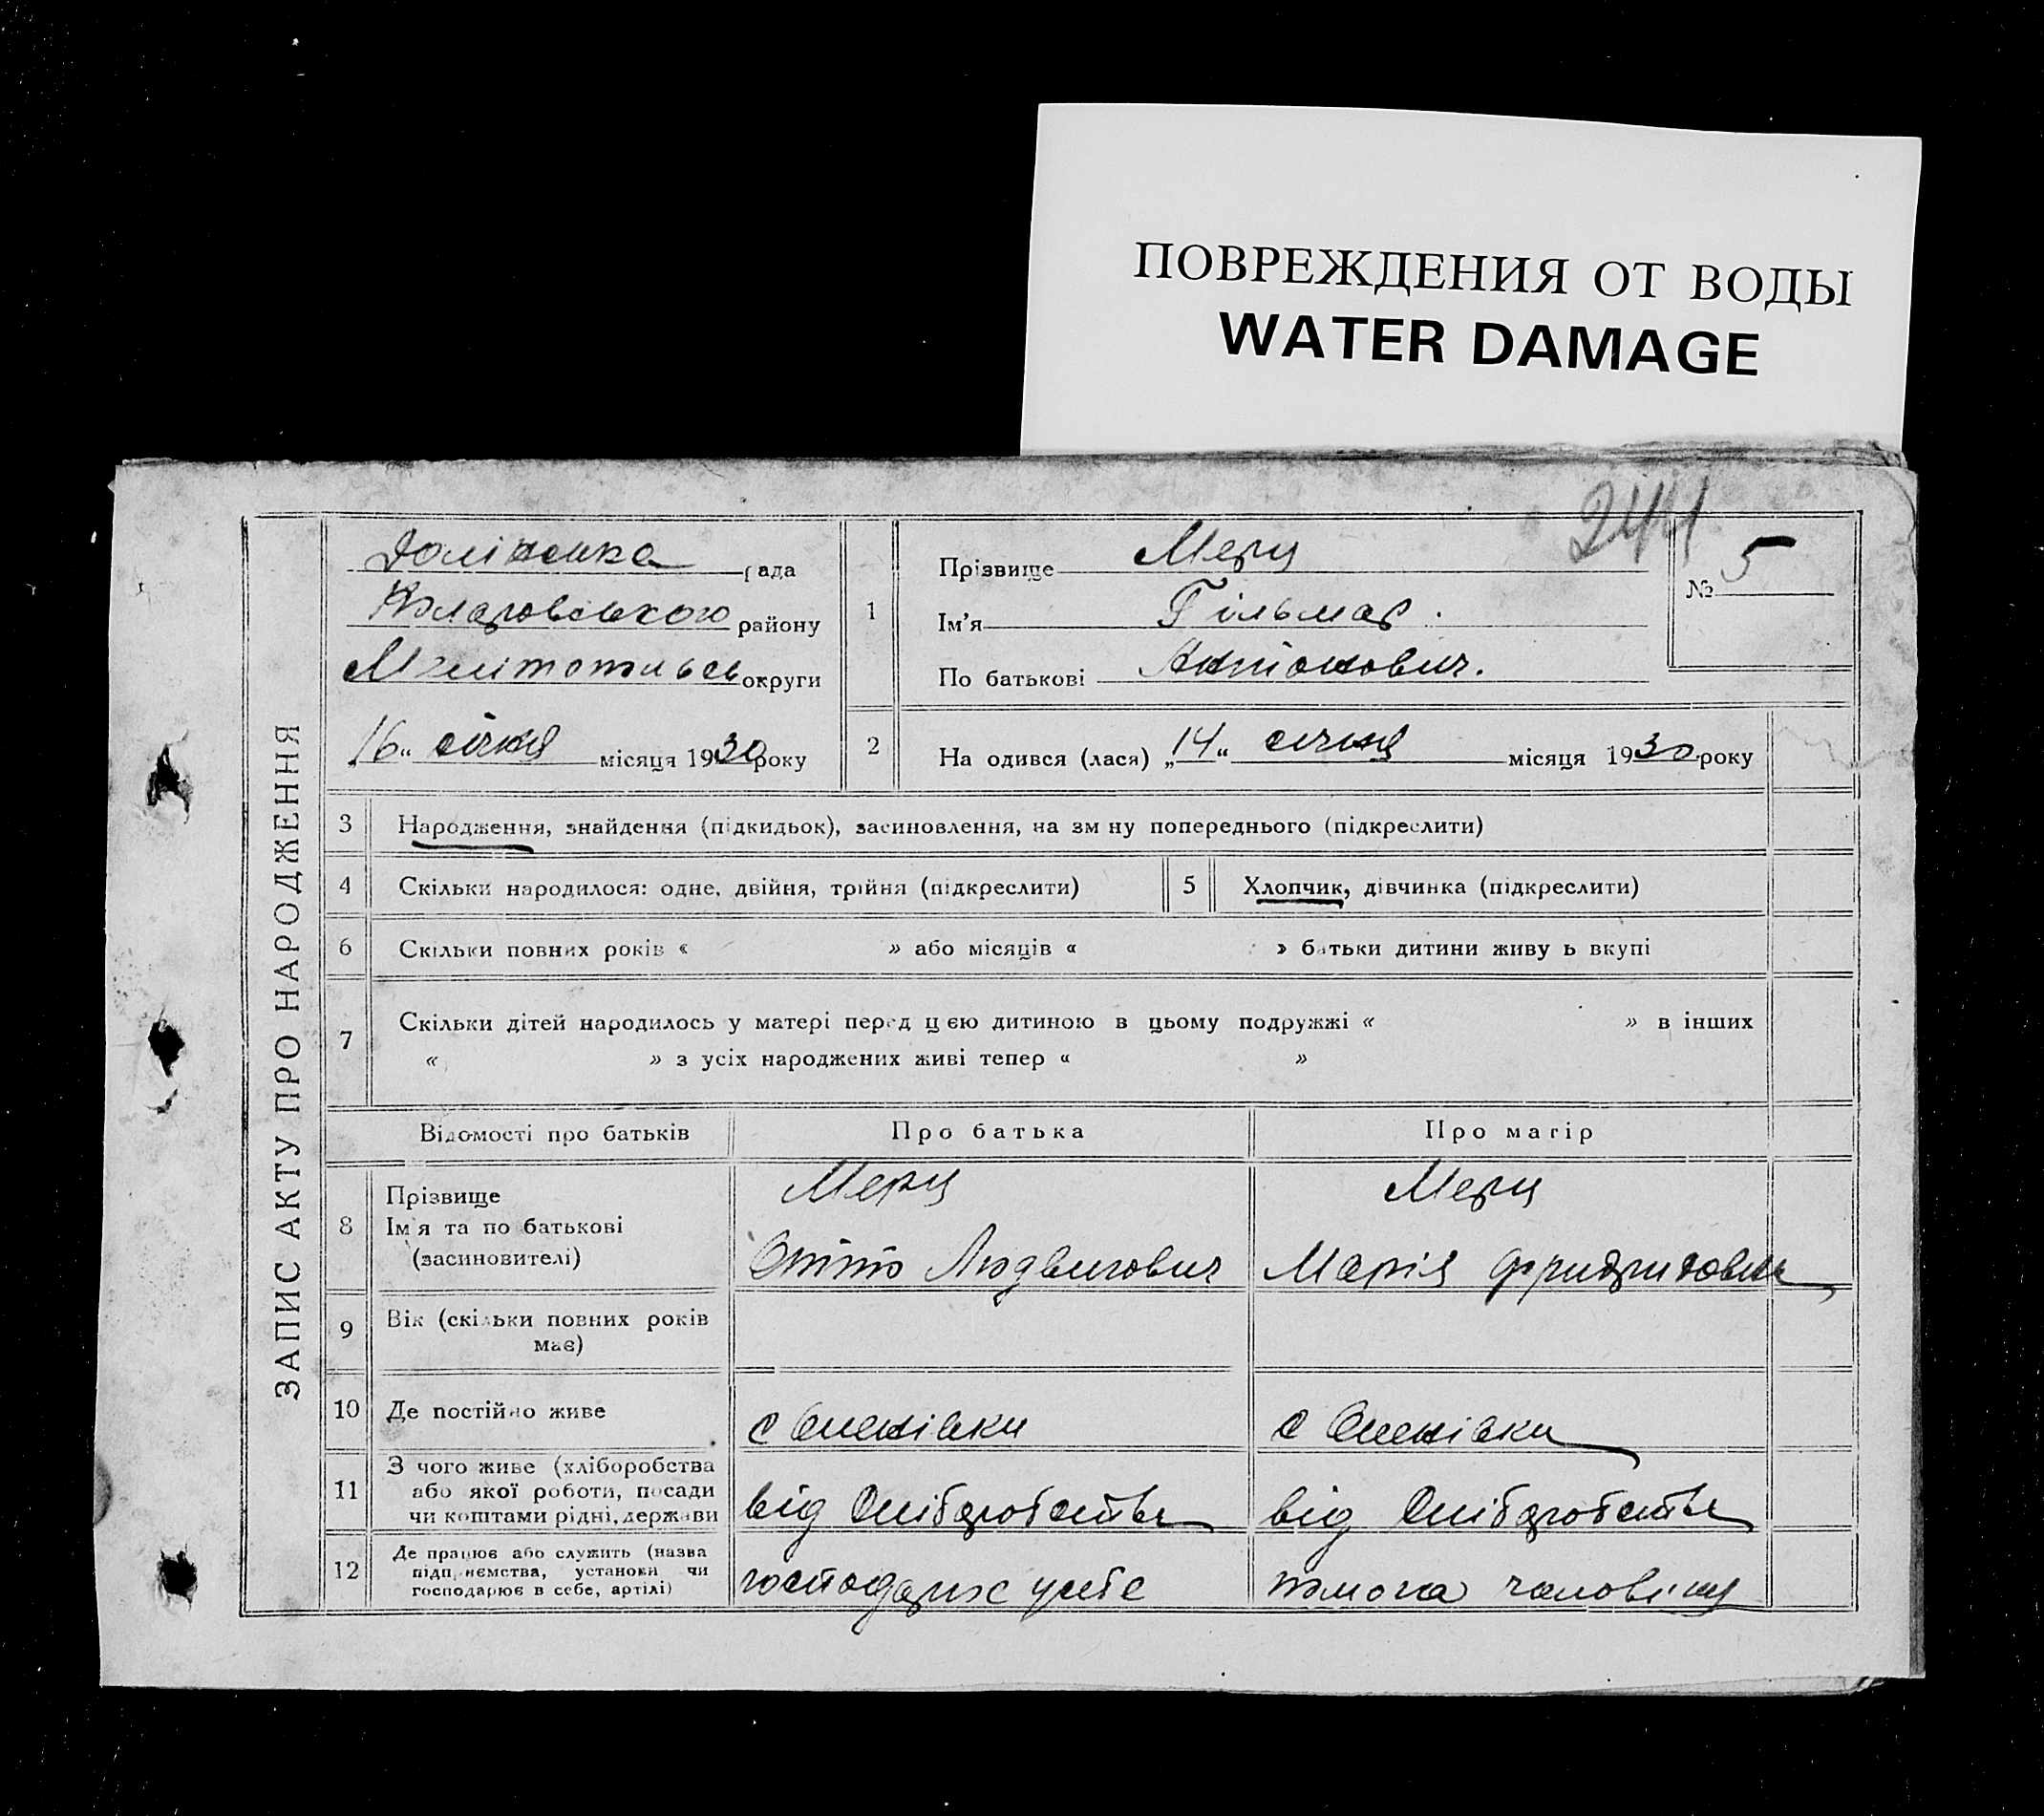 ПОВРЕЖДЕНИЯ ОТ ВОДЫ
WATER DAMAGE
244
ЗАПИС АКТУ ПРО НАРОДЖЕННЯ
рада
району
округи
„16“ січня місяця 1930 року
1
Прізвище Мерц
Ім'я Гільмар.
По батькові
№ 5
2
На одився (лася) „14“ січня місяця 1930 року
3 Народження, знайдення (підкидьок), засиновлення, на зм ну попереднього (підкреслити)
4 Скільки народилося: одне, двійня, трійня (підкреслити)
5 Хлопчик, дівчинка (підкреслити)
6 Скільки повних років « » або місяців « » батьки дитини живу ь вкупі
7 Скільки дітей народилось у матері перед цією дитиною в цьому подружжі « » в інших
« » з усіх народжених живі тепер « »
Відомості про батьків Про батька Про матір
8 Прізвище Мерц Мерц
Ім'я та по батькові
(засиновителі) Отто Людвигович Марія
9 Вік (скільки повних років
має)
10 Де постійно живе с с
11 З чого живе (хліборобства
або якої роботи, посади
чи коштами рідні, держави від від
12 Де працює або служить (назва
підприємства, установи чи
господарює в себе, артілі)